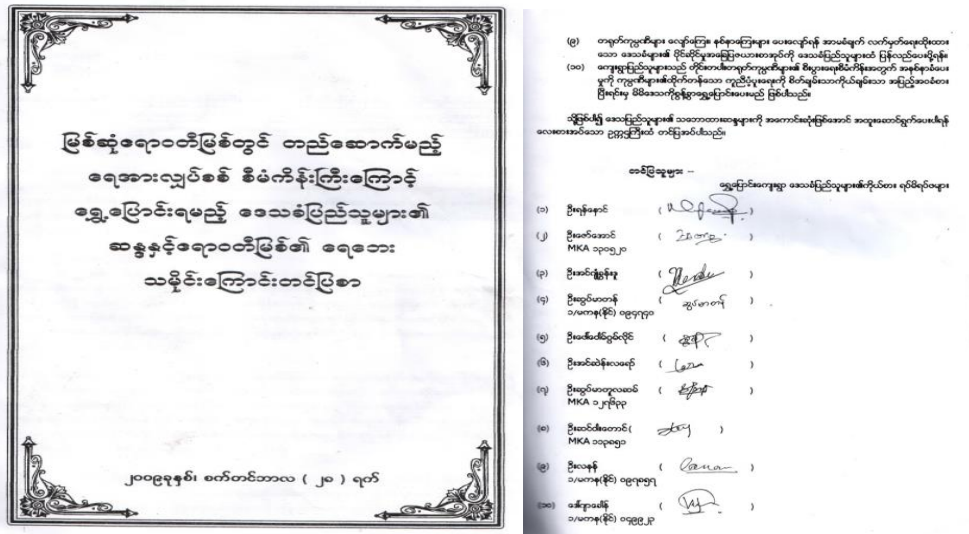 မြစ်ဆုံဧရာဝတီမြစ်တွင် တည်ဆောက်မည့်
ရေအားလျှပ်စစ် စီမံကိန်းကြီးကြောင့်
ရွှေ့ပြောင်းရမည့် ဒေသခံပြည်သူများ၏
ဆန္ဒနှင့်ဧရာဝတီမြစ်၏ ရေဘေး
သမိုင်းကြောင်းတင်ပြစာ
၂၀၀၉ခုနှစ်၊ စက်တင်ဘာလ ( ၂၈ ) ရက်
(၉) တရုတ်ကုမ္ပဏီများ လျော်ကြေး နစ်နာကြေးများ ပေးလျော်ရန် အာမခံချက် လက်မှတ်ရေးထိုးထား
သော ဒေသခံများ၏ ပိုင်ဆိုင်မှုအခြေပြဇယားစာအုပ်ကို ဒေသခံပြည်သူများထံ ပြန်လည်ပေးပို့ရန်။
(၁၀) ကျေးရွာပြည်သူများသည် တိုင်းတပါးတရုတ်ကုမ္ပဏီများ၏ စီးပွားရေးစီမံကိန်းအတွက် အနစ်နာခံပေး
မှုကို ကုမ္ပဏီများ၏ထိုက်တန်သော ကူညီပံ့ပိုးရေးကို စိတ်ချမ်းသာကိုယ်ချမ်းသာ အပြည့်အဝခံစား
ပြီးရင်းမှ မိမိဒေသကိုစွန့်ခွာရွှေ့ပြောင်းပေးမည် ဖြစ်ပါသည်။
သို့ဖြစ်ပါ၍ ဒေသပြည်သူများ၏ သဘောထားဆန္ဒများကို အကောင်းဆုံးဖြစ်အောင် အထူးဆောင်ရွက်ပေးပါရန်
လေးစားအပ်သော ဥက္ကဋ္ဌကြီးထံ တင်ပြအပ်ပါသည်။
တင်ပြသူများ –
ရွှေ့ပြောင်းကျေးရွာ ဒေသခံပြည်သူများ၏ကိုယ်စား ရပ်မိရပ်ဖများ
(၁) ဦးရန်နောင် ( )
(၂) ဦးဇော်အောင် ( )
MKA ၁၃၀၅၂၀
(၃) ( )
(၄) ဦးဆွပ်မာတန် ( ဆွပ်မာတန် )
၁/မကန(နိုင်) ၀၉၄၇၄၀
(၅) ( )
(၆) ဦးအင်ဆဲန်းလရော် ( )
(၇) ဦးဆွပ်မာတူလဆမ် ( )
MKA ၁၂၇၆၃၃
(၈) ဦးဆင်ဝါးတောင် ( )
MKA ၁၁၃၈၅၁
(၉) ဦးလနန် ( )
၁/မကန(နိုင်) ၀၉၇၈၅၇
(၁၀) ( )
၁/မကန(နိုင်) ၀၄၉၉၂၃